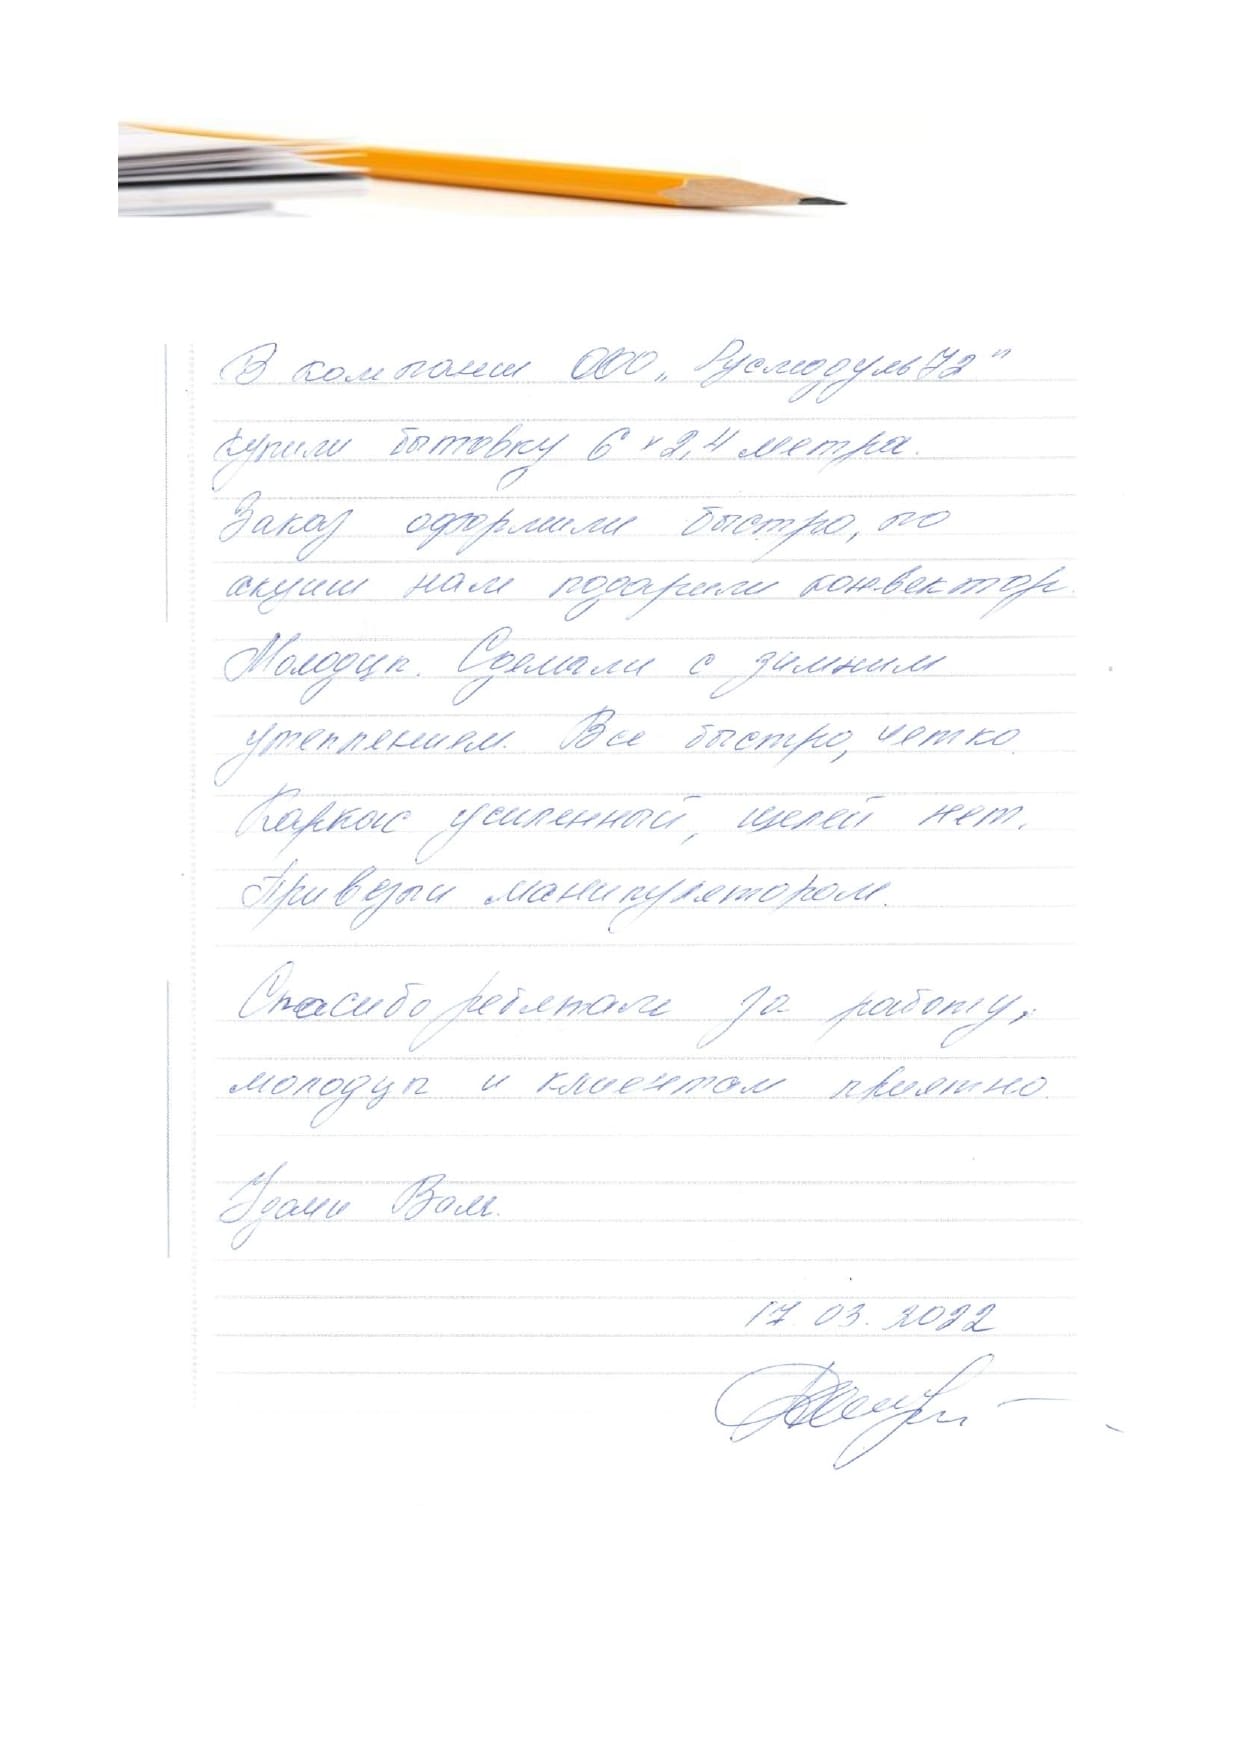 В компании ООО „Русмодуль72"
купили бытовку 6 х 2,4 метра.
Заказ оформили быстро, по
акции нам подарили конвектор.
Молодцы. Сделали с зимним
утеплением. Все быстро, четко.
Каркас усиленный, щелей нет.
Привезли манипулятором.
Спасибо ребятам за работу,
молодцы и клиентам приятно.
Удачи Вам.
17.03.2022